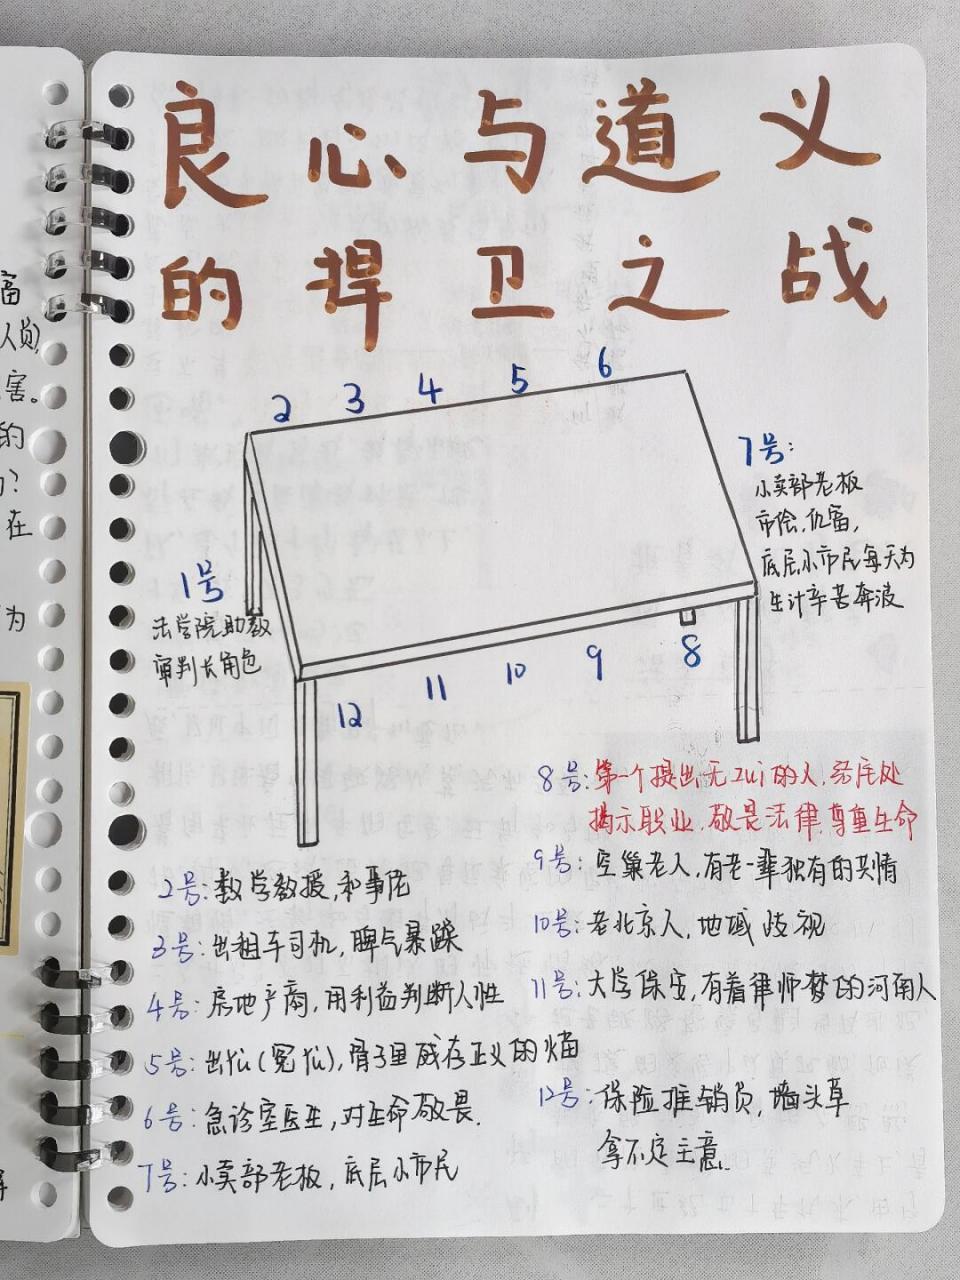 良心与道义
的捍卫之战
2 3 4 5 6
7号:
小卖部老板
市侩,仇富,
底层小市民每天为
生计辛苦奔波
1号
法学院助教
审判长角色
8
9
10
11
12
8号:第一个提出无zui的人,结尾处
揭示职业,敬畏法律,尊重生命
9号:空巢老人,有老一辈独有的共情
10号:老北京人,地域歧视
11号:大学保安,有着律师梦的河南人
12号:保险推销员,墙头草
拿不定主意。
2号:数学教授,和事佬
3号:出租车司机,脾气暴躁
4号:房地产商,用利益判断人性
5号:出狱(冤狱),骨子里留存正义的火苗
6号:急诊室医生,对生命敬畏.
7号:小卖部老板,底层小市民
富
人员,
害。
的
?
在
为